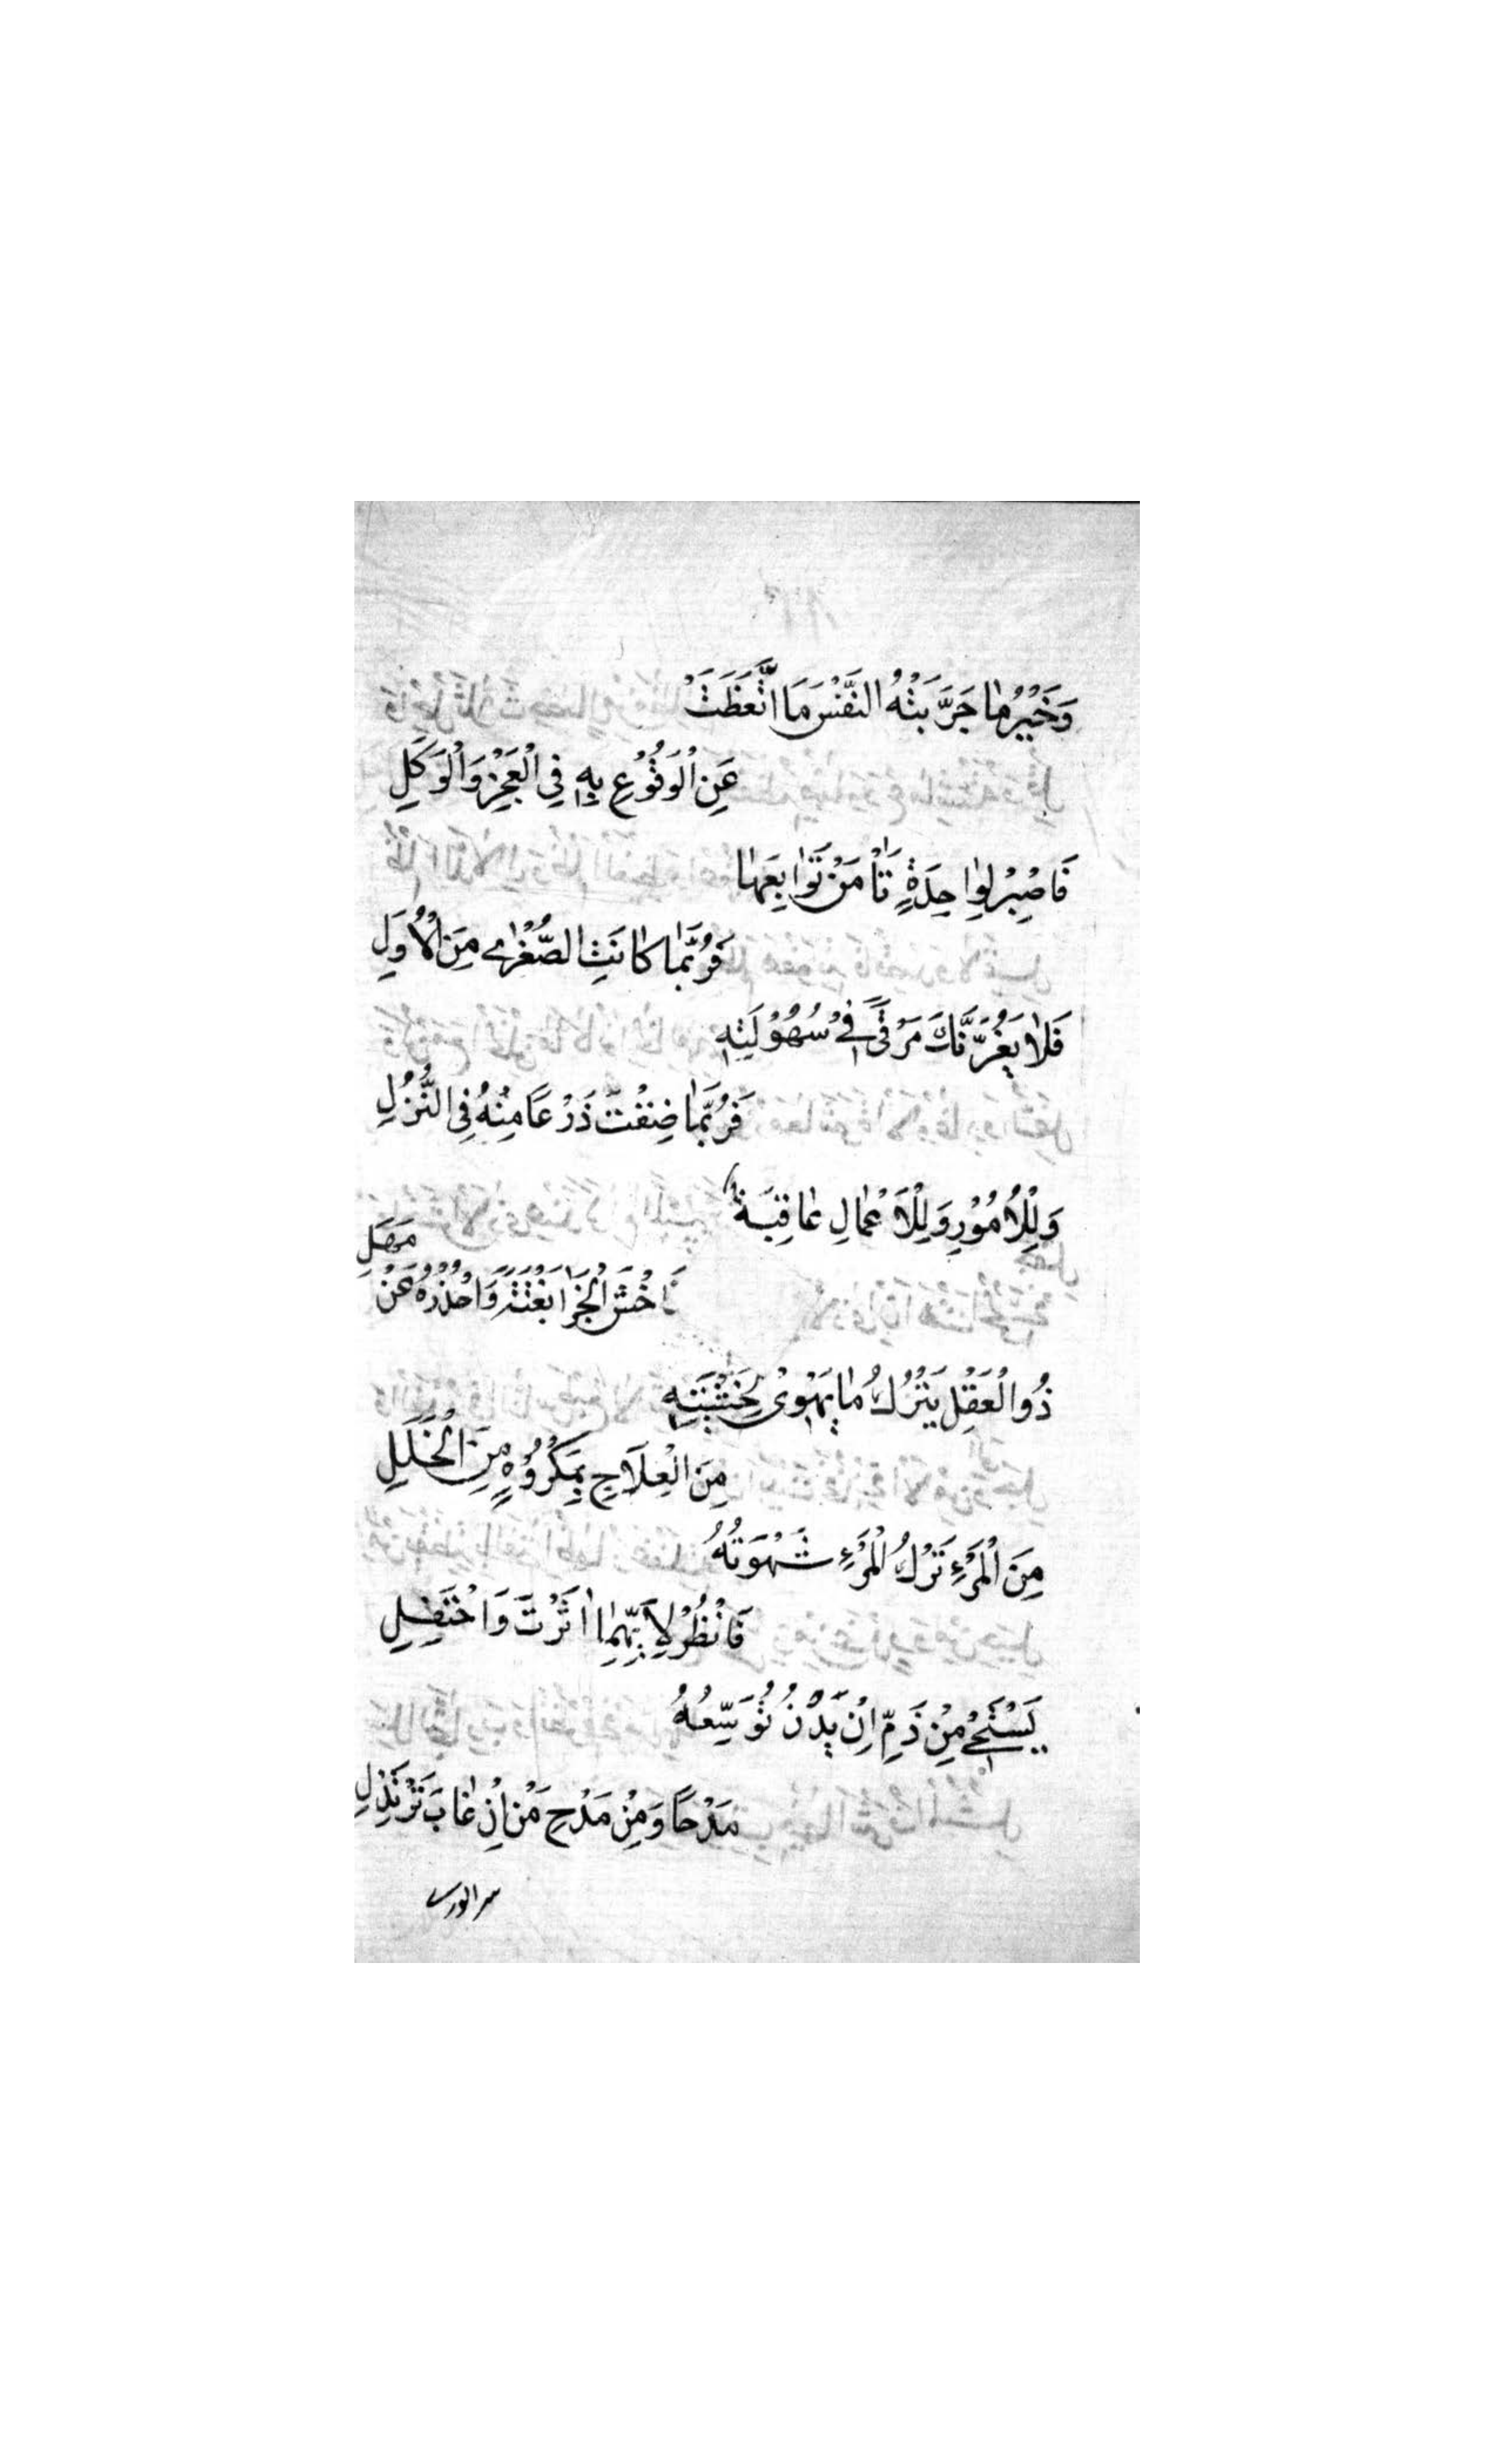 وَخَيْرُ مَا جَرَّبَتْهُ النَّفْسُ مَا اتَّعَظَتْ
عَنِ الْوُقُوْعِ بِهِ فِي الْعَجْزِ وَالْوَكَلِ
فَاصْبِرْ لِوَاحِدَةٍ تَأْمَنْ تَوَابِعَهَا
فَرُبَّمَا كَانَتِ الصُّغْرٰى مِنَ الْأُوَلِ
فَلَا يَغُرَّنَّكَ مَرْقًى فِيْ سُهُوْلَتِهِ
فَرُبَّمَا ضِقْتَ ذَرْعًا مِنْهُ فِي النُّزُلِ
وَلِلْأُمُوْرِ وَلِلْأَعْمَالِ عَاقِبَةٌ
فَاخْشَ الْجَزَا بَغْتَةً وَاحْذَرْهُ عَنْ مَهَلِ
ذُو الْعَقْلِ يَتْرُكُ مَا يَهْوٰى لِخَشْيَتِهِ
مِنَ الْعِلَاجِ بِمَكْرُوْهٍ مِنَ الْخَلَلِ
مِنَ الْمَرْءِ تَرْكُ الْمَرْءِ شَهْوَتَهُ
فَانْظُرْ لِأَيِّهِمَا اٰثَرْتَ وَاحْتَفِلِ
يَسْتَحْيِ مِنْ ذَمِّ اِنْ يَدْنُ تُوَسِّعُهُ
مَدْحًا وَمِنْ مَدْحِ مَنْ اِنْ غَابَ تَرْتَذِلِ